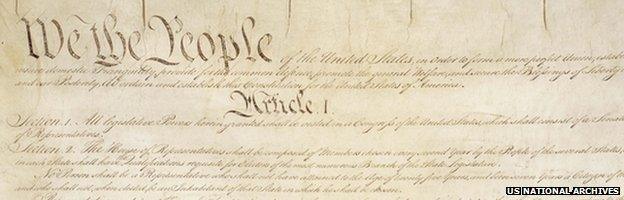 We the People of the United States, in Order to form a more perfect Union, establ
insure domestic Tranquility, provide for the common defence, promote the general Welfare, and secure the Blessings of Liberty
and our Posterity, do ordain and establish this Constitution for the United States of America.
Article. I.
Section. 1. All legislative Powers herein granted shall be vested in a Congress of the United States, which shall consist of a Senate
of Representatives.
Section. 2. The House of Representatives shall be composed of Members chosen every second Year by the People of the several States,
in each State shall have the Qualifications requisite for Electors of the most numerous Branch of the State Legislature.
No Person shall be a Representative who shall not have attained to the Age of twenty five Years, and been seven Years a Citizen of the
and who shall not, when elected, be an Inhabitant of that State in which he shall be chosen.
US NATIONAL ARCHIVES